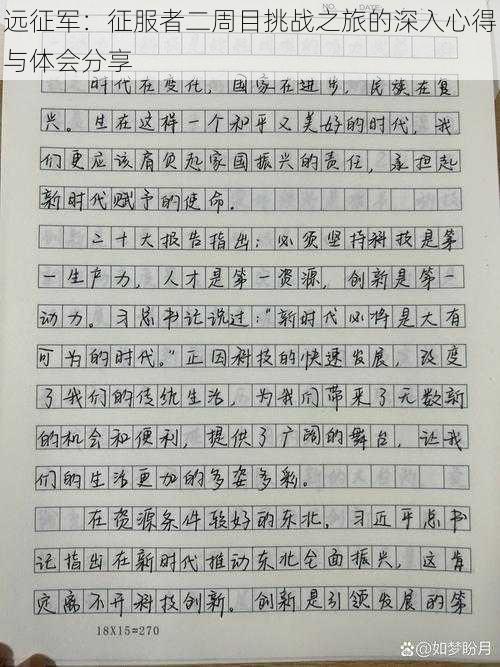 远征军：征服者二周目挑战之旅的深入心得
与体会分享
时代在变化，国家在进步，民族在复
兴。生在这样一个和平又美好的时代，我
们更应该肩负起家国振兴的责任，承担起
新时代赋予的使命.
二十大报告指出：必须坚持科技是第
一生产力，人才是第一资源，创新是第一
动力。习总书记说过："新时代必将是大有
可为的时代。"正因科技的快速发展，改变
了我们的传统生活，为我们带来了无数新
的机会和便利，提供了广阔的舞台，让我
们的生活更加的多姿多彩。
在资源条件较好的东北，习近平总书
记指出在新时代推动东北全面振兴，这肯
定离不开科技创新。创新是引领发展的第
18X15=270
@如梦盼月